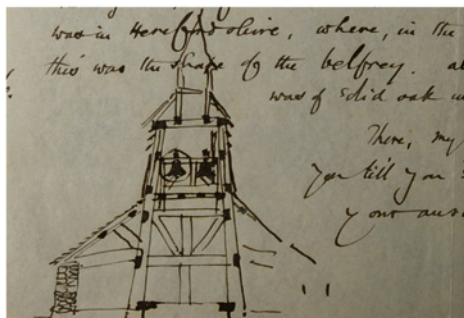 was in Herefordshire, where, in the
this was the shape of the belfrey. al
was of solid oak
There, my
you till you
your